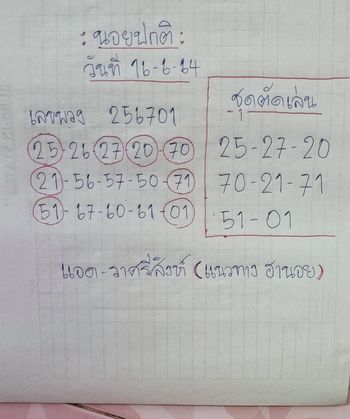 : นอยปกติ :
วันที่ 16-6-64
เลขพวง 256701
25-26-27-20-70
21-56-57-50-71
51-67-60-61-01
ชุดตัดเล่น
25-27-20
70-21-71
51-01
แอด-ราศรีสิงห์ (แนวทาง ฮานอย)